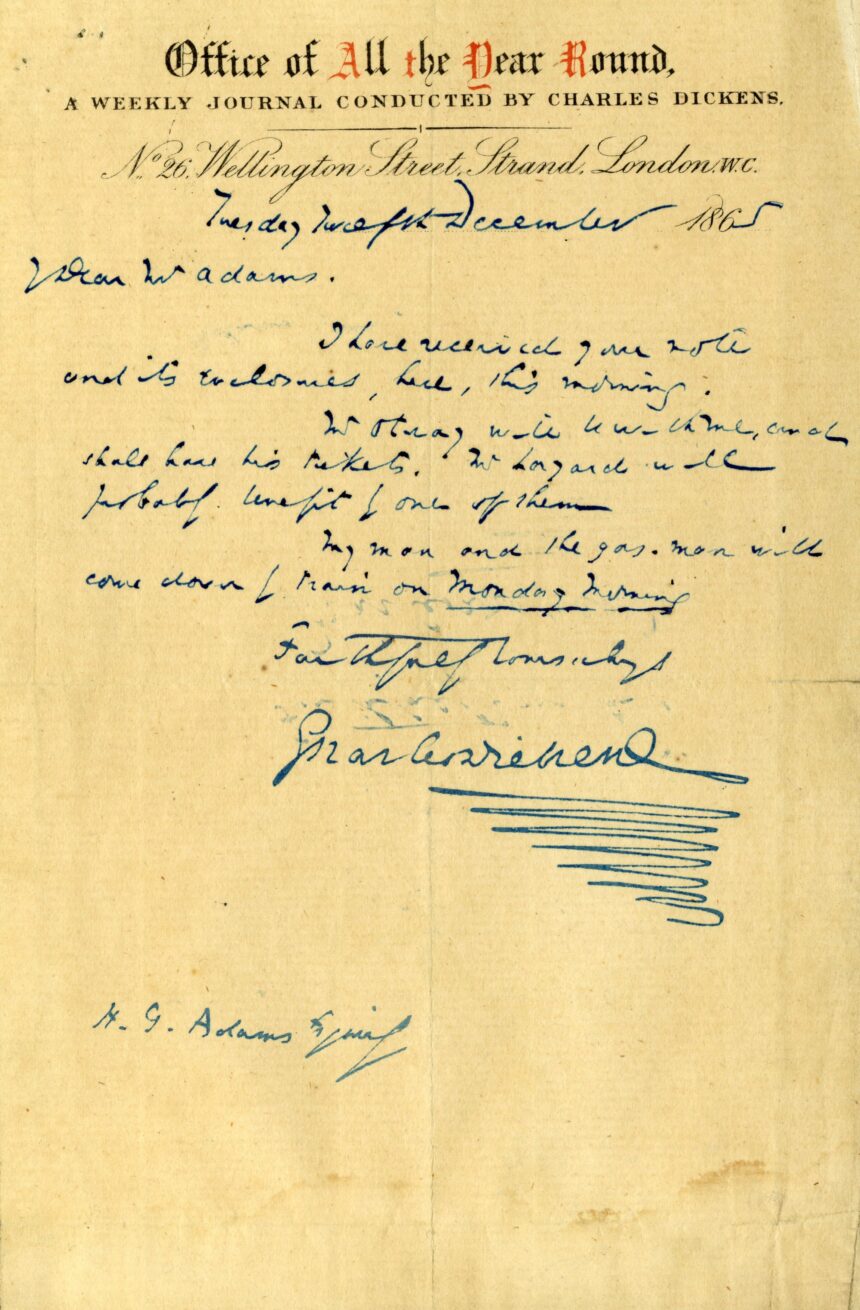 Office of All the Year Round,
A WEEKLY JOURNAL CONDUCTED BY CHARLES DICKENS.
No. 26, Wellington Street, Strand, London. W.C.
Tuesday Twelfth December 1865
My Dear Mr Adams.
I have received your note
and its enclosures, here, this morning.
Mr will be with me, and
shall have his tickets. Mr will
probably benefit by one of them
My man and the gas-man will
come down by train on Monday Morning
Faithfully Yours always
Charles Dickens
H. G. Adams Esquire